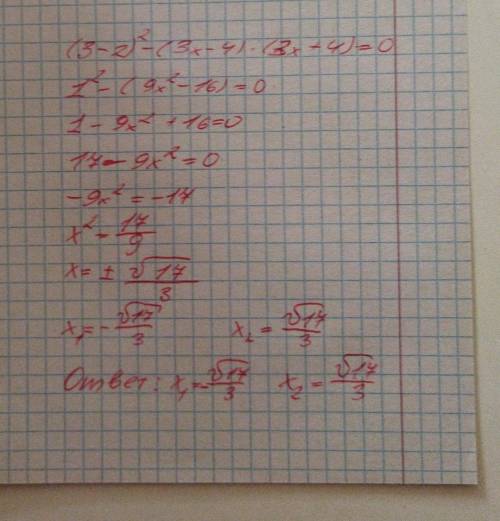 (3-2)²-(3x-4)·(3x+4)=0
1²-(9x²-16)=0
1-9x²+16=0
17-9x²=0
-9x²=-17
x²=17/9
x=±√17/3
x₁=-√17/3 x₂=√17/3
Ответ: x₁=-√17/3 x₂=√17/3